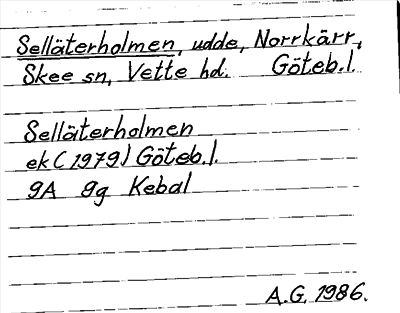 Selläterholmen, udde, Norrkärr,
Skee sn, Vette hd. Göteb.l.
Selläterholmen
ek (1979) Göteb.l.
9A 9g Kebal
A.G. 1986.